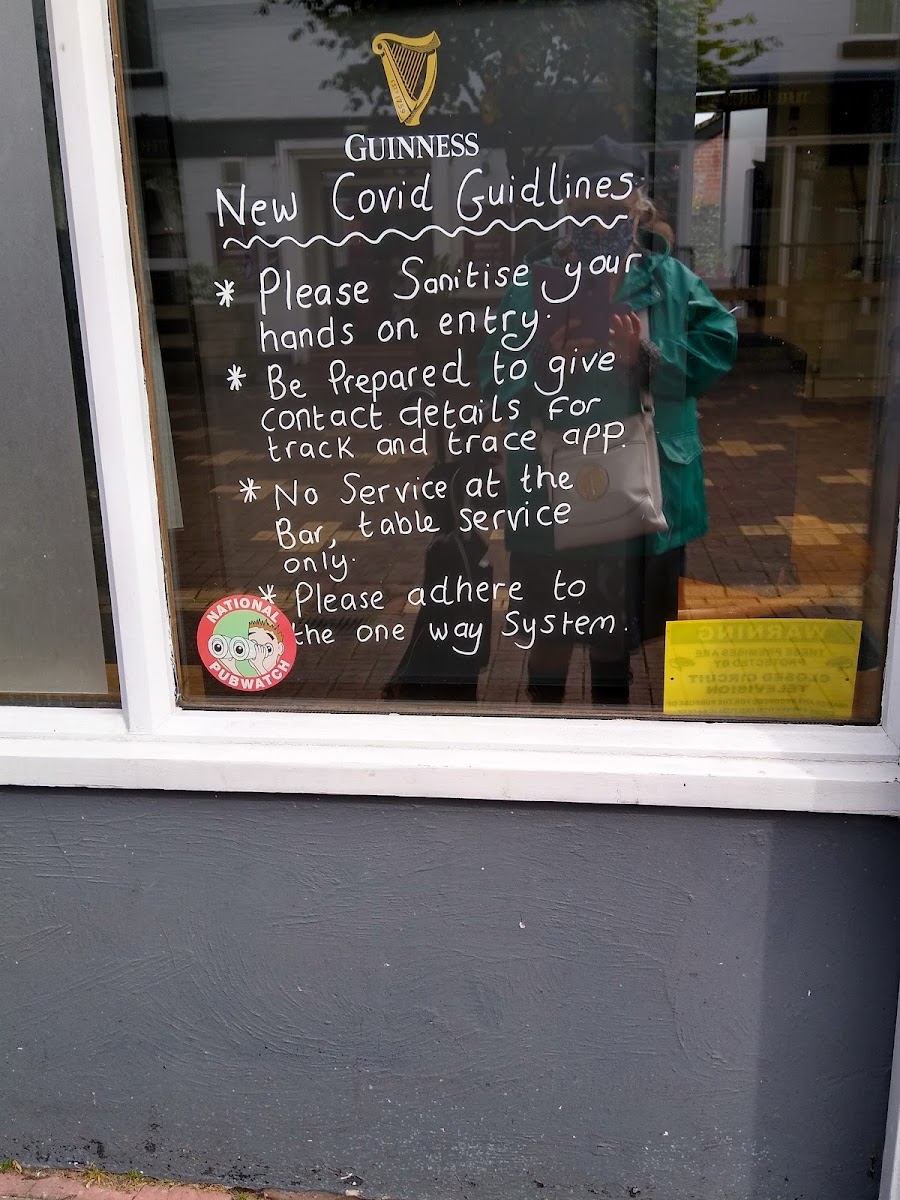 GUINNESS
New Covid Guidlines
* Please Sanitise your
hands on entry.
* Be Prepared to give
contact details For
track and trace app.
* No Service at the
Bar, table service
only.
* Please adhere to
the one way System.
NATIONAL
PUBWATCH
WARNING
THESE PREMISES ARE
PROTECTED BY
CLOSED CIRCUIT
TELEVISION